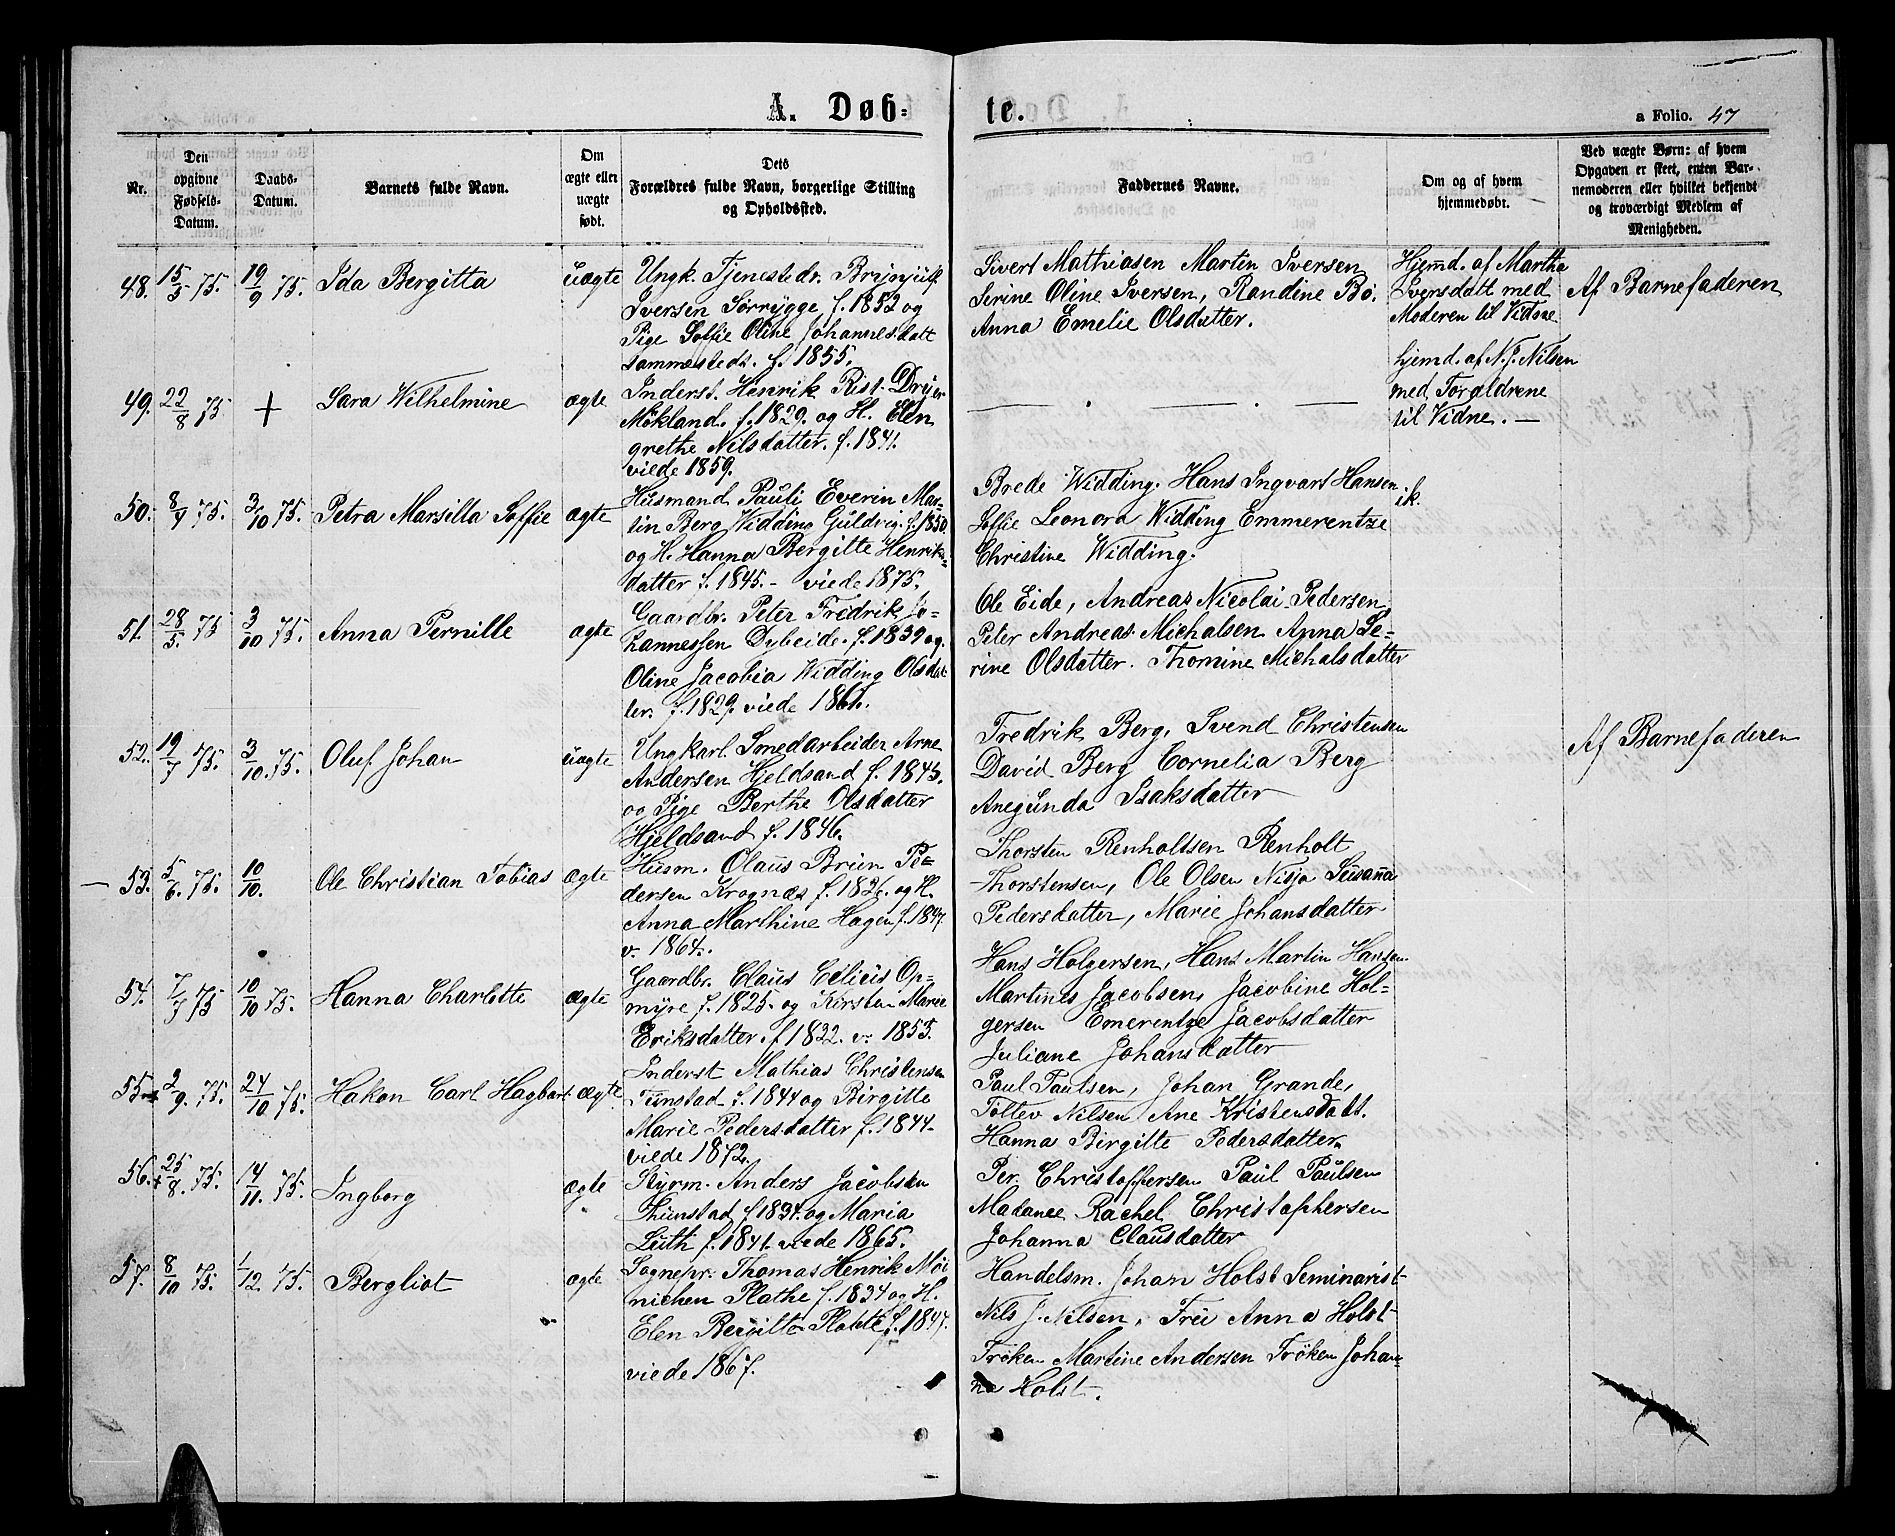 A. Døbte.
a Folio. 47
Nr.
Den opgivne Fødsels-Datum.
Daabs-Datum.
Barnets fulde Navn.
Om ægte eller uægte født.
Dets Forældres fulde Navn, borgerlige Stilling og Opholdssted.
Faddernes Navne.
Om og af hvem hjemmedøbt.
Ved uægte Børn: af hvem Opgaven er skeet, enten Barnemoderen eller hvilket bekjendt og troværdigt Medlem af Menigheden.
48. 15/5 75. 19/9 75. Ida Bergitta uægte
Ungk. Tjenestedr. Brynjulf
Iversen Sørrygge f. 1852 og
Pige Soffie Oline Johannesdatt
sammesteds. f. 1855.
Sivert Mathiasen Martin Iversen
Serine Oline Iversen, Randine Bø.
Anna Emelie Olsdatter.
Hjemd. af Martha
Iversdatt med
Moderen til Vidne
Af Barnefaderen
49. 22/8 75 + Sara Wilhelmine ægte
Inderst. Henrik Rist. Dryer
Møkland. f. 1829. og H. Elen
grethe Nilsdatter. f. 1841.
viede 1859.
hjemd. af N. J. Nilsen
med Forældrene
til Vidne. —
50. 8/4 75. 3/10 75. Petra Marsilla Soffie ægte
Husmand Pauli Everin Mar-
tin Berg Widding Guldvig f. 1850.
og H. Hanna Bergitte Henriks-
datter f. 1845. - viede 1875.
Brede Widding. Hans Ingvart Hansen
Soffie Leonora Widding Emmerentze
Christine Widding.
ik.
51. 28/5. 75 3/10 75. Anna Pernille ægte
Gaardbr. Peter Fredrik Jo-
hannessen Dybeide. f. 1839 og.
Oline Jacobia Widding Olsdat
ter. f. 1829. viede 1861.
Ole Eide, Andreas Nicolai Pedersen,
Peter Andreas Michalsen Anna Se-
rine Olsdatter. Thomine Michalsdatter
52. 19/7 75. 3/10. 75. Oluf Johan uægte
Ungkarl Smedarbeider Arne
Andersen Hjeldsand f. 1845.
og Pige Berthe Olsdatter
Hjeldsand f. 1846.
Fredrik Berg, Svend Christensen
David Berg Cornelia Berg
Anegunda Isaksdatter
Af Barnefaderen
53. 5/6. 75. 10/10. Ole Christian Tobias ægte
Husm. Olaus Brun Pe-
dersen Krognæs f. 1826. og H.
Anna Marthine Hagen f. 1847.
v. 1864.
Thorsten Renholtsen Renholt
Thorstensen, Ole Olsen Nisja Susanna
Pedersdatter, Marie Johansdatter
54. 7/7 75 10/10 75. Hanna Charlotte ægte
Gaardbr. Claus Edlius Op-
myre f. 1825. og Kirsten Marie
Eriksdatter. f 1832. v. 1853.
Hans Holgersen, Hans Martin Hansen
Martines Jacobsen, Jacobine Hol-
gersen Emerentze Jacobsdatter
Juliane Johansdatter
55. 2/9. 75. 24/10 75. Hakon Carl Hagbart ægte
Inderst Mathias Christensen
Tunstad f. 1844 og Birgitte
Marie Pedersdatter f. 1844
viede 1872.
Paul Paulsen, Johan Grande,
Tollev Nilsen Ane Kristensdatt.
Hanna Birgitte Pedersdatter
56. 25/8. 75. 14/11. 75. Ingborg ægte
Styrm. Anders Jacobsen
Thunstad f 1834. og Maria
Luth f. 1841. viede 1865.
Per Christoffersen Paul Paulsen
Madame Rachel Christophersen
Johanna Clausdatter
57. 8/10 75. 1/12. 75. Bergliot ægte
Sognepr. Thomas Henrik Møi
nichen Plathe f. 1834 og H.
Elen Bergitte Plathe f. 1847.
viede 1867.
Handelsm. Johan Holst Seminarist
Nils J. Nilsen, Frü Anna Holst
Frøken Martine Andersen Frøken Johan-
na Holst.